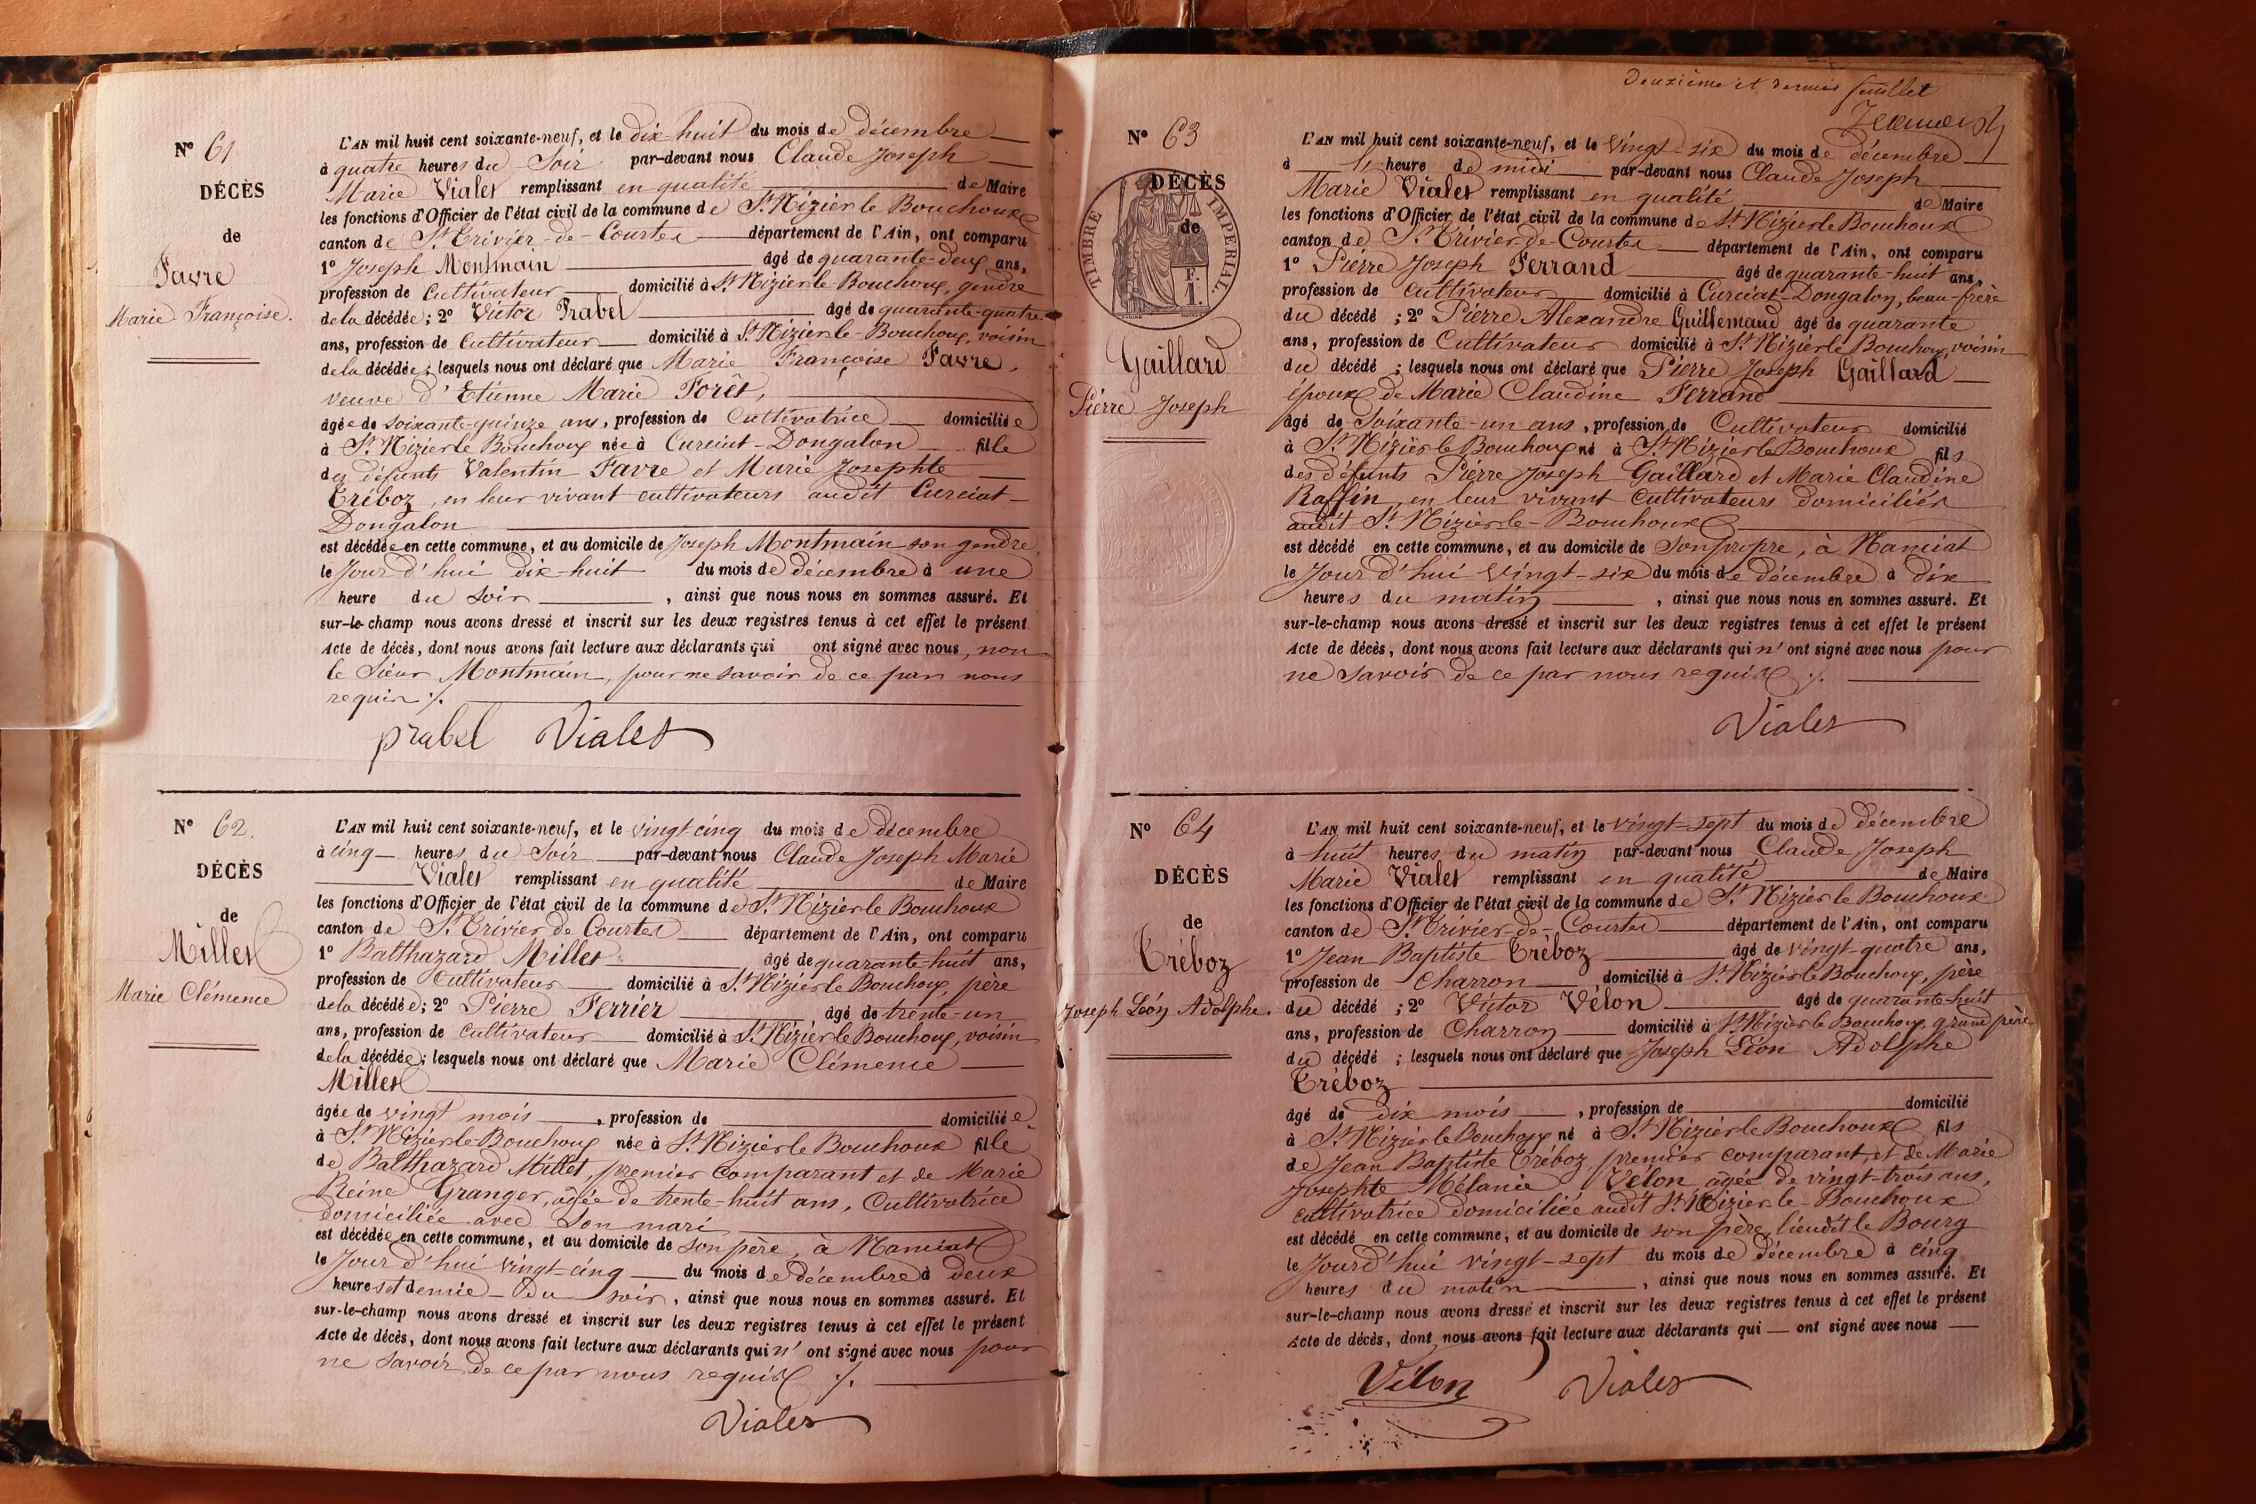 N° 61
DÉCÈS
de
Favre
Marie Françoise.
L'AN mil huit cent soixante-neuf, et le dix-huit du mois de décembre
à quatre heures du Soir par-devant nous Claude Joseph
Marie Vialet remplissant en qualité de Maire
les fonctions d'Officier de l'état civil de la commune de St Nizier le Bouchoux
canton de St Trivier-de-Courtes département de l'Ain, ont comparu
1° Joseph Montmain âgé de quarante-deux ans,
profession de Cultivateur domicilié à St Nizier le Bouchoux, gendre
de la décédée; 2° Victor Prabel âgé de quarante-quatre
ans, profession de Cultivateur domicilié à St Nizier le Bouchoux, voisin
de la décédée; lesquels nous ont déclaré que Marie Françoise Favre,
veuve d'Etienne Marie Forêt,
âgée de soixante-quinze ans, profession de Cultivatrice domiciliée
à St Nizier le Bouchoux née à Curciat-Dongalon fille
des défunts Valentin Favre et Marie Josephte
Tréboz, en leur vivant cultivateurs audit Curciat-
Dongalon
est décédée en cette commune, et au domicile de Joseph Montmain son gendre,
le Jour d'hui dix-huit du mois de décembre à une
heure du soir, ainsi que nous nous en sommes assuré. Et
sur-le-champ nous avons dressé et inscrit sur les deux registres tenus à cet effet le présent
Acte de décès, dont nous avons fait lecture aux déclarants qui ont signé avec nous, non
le Sieur Montmain, pour ne savoir de ce par nous
requis ./.
prabel Vialet
N° 62.
DÉCÈS
de
Millet
Marie Clémence
L'AN mil huit cent soixante-neuf, et le vingt cinq du mois de décembre
à cinq heures du Soir par-devant nous Claude Joseph Marie
Vialet remplissant en qualité de Maire
les fonctions d'Officier de l'état civil de la commune de St Nizier le Bouchoux
canton de St Trivier de Courtes département de l'Ain, ont comparu
1° Balthazard Millet âgé de quarante-huit ans,
profession de Cultivateur domicilié à St Nizier le Bouchoux, père
de la décédée; 2° Pierre Ferrier âgé de trente-un
ans, profession de Cultivateur domicilié à St Nizier le Bouchoux, voisin
de la décédée; lesquels nous ont déclaré que Marie Clémence
Millet
âgée de vingt mois, profession de domiciliée
à St Nizier le Bouchoux née à St Nizier le Bouchoux fille
de Balthazard Millet, premier comparant et de Marie
Reine Granger, âgée de trente-huit ans, Cultivatrice
domiciliée avec Son mari
est décédée en cette commune, et au domicile de Son père, à Nanciat
le Jour d'hui vingt-cinq du mois de décembre à deux
heures et demie du soir, ainsi que nous nous en sommes assuré. Et
sur-le-champ nous avons dressé et inscrit sur les deux registres tenus à cet effet le présent
Acte de décès, dont nous avons fait lecture aux déclarants qui n'ont signé avec nous pour
ne savoir de ce par nous requis ./.
Vialet
Deuxième et dernier feuillet
N° 63
DÉCÈS
de
TIMBRE IMPÉRIAL.
F.
1.
Gaillard
Pierre Joseph
L'AN mil huit cent soixante-neuf, et le vingt-six du mois de décembre
à heure de midi par-devant nous Claude Joseph
Marie Vialet remplissant en qualité de Maire
les fonctions d'Officier de l'état civil de la commune de St Nizier le Bouchoux
canton de St Trivier-de-Courtes département de l'Ain, ont comparu
1° Pierre Joseph Ferrand âgé de quarante-huit ans,
profession de Cultivateur domicilié à Curciat-Dongalon, beau-frère
du décédé ; 2° Pierre Alexandre Guillemaud âgé de quarante
ans, profession de Cultivateur domicilié à St Nizier le Bouchoux, voisin
du décédé ; lesquels nous ont déclaré que Pierre Joseph Gaillard
époux de Marie Claudine Ferrand
âgé de Soixante-un ans, profession de Cultivateur domicilié
à St Nizier le Bouchoux né à St Nizier le Bouchoux fils
des défunts Pierre Joseph Gaillard et Marie Claudine
Raffin, en leur vivant Cultivateurs domiciliés
audit St Nizier-le-Bouchoux
est décédé en cette commune, et au domicile de Son propre, à Nanciat
le Jour d'hui vingt-six du mois de décembre à dix
heures du matin, ainsi que nous nous en sommes assuré. Et
sur-le-champ nous avons dressé et inscrit sur les deux registres tenus à cet effet le présent
Acte de décès, dont nous avons fait lecture aux déclarants qui n'ont signé avec nous pour
ne savoir de ce par nous requis ./.
Vialet
N° 64
DÉCÈS
de
Tréboz
Joseph Léon Adolphe.
L'AN mil huit cent soixante-neuf, et le vingt-sept du mois de décembre
à huit heures du matin par-devant nous Claude Joseph
Marie Vialet remplissant en qualité de Maire
les fonctions d'Officier de l'état civil de la commune de St Nizier le Bouchoux
canton de St Trivier-de-Courtes département de l'Ain, ont comparu
1° Jean Baptiste Tréboz âgé de vingt-quatre ans,
profession de Charron domicilié à St Nizier le Bouchoux, père
du décédé ; 2° Victor Vélon âgé de quarante-huit
ans, profession de Charron domicilié à St Nizier le Bouchoux, grand père
du décédé ; lesquels nous ont déclaré que Joseph Léon Adolphe
Tréboz
âgé de dix mois, profession de domicilié
à St Nizier le Bouchoux né à St Nizier le Bouchoux fils
de Jean Baptiste Tréboz, premier comparant et de Marie
Josephte Mélanie Vélon âgée de vingt-trois ans,
cultivatrice domiciliée audit St Nizier-le-Bouchoux
est décédé en cette commune, et au domicile de son père, lieudit le Bourg
le Jourd'hui vingt-sept du mois de décembre à cinq
heures du matin, ainsi que nous nous en sommes assuré. Et
sur-le-champ nous avons dressé et inscrit sur les deux registres tenus à cet effet le présent
Acte de décès, dont nous avons fait lecture aux déclarants qui ont signé avec nous
Vélon Vialet